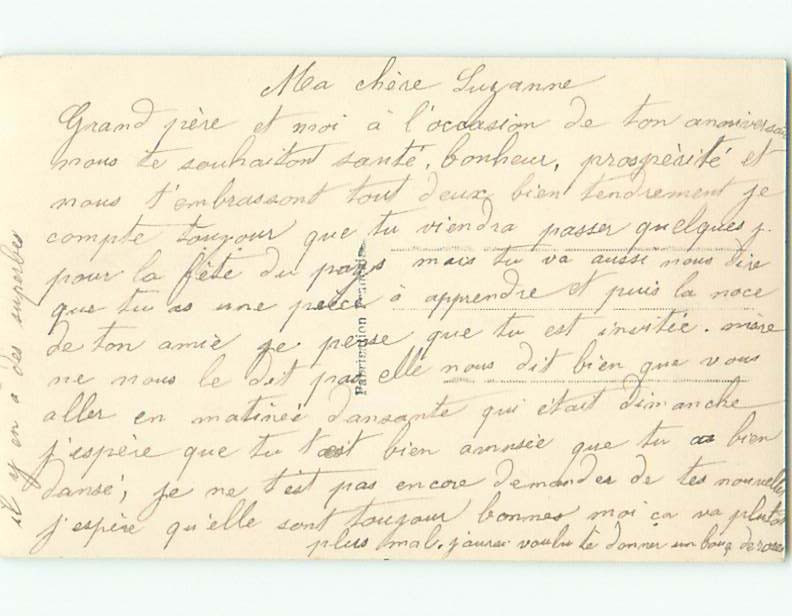 Ma chère Suzanne
Grand père et moi à l'occasion de ton anniversaire
nous te souhaitont santé, bonheur, prospèrité et
nous t'embrassont tout deux bien tendrement je
compte toujour que tu viendra passer quelques j.
pour la fête du pays mais tu va aussi nous dire
que tu as une pièce à apprendre et puis la noce
de ton amie je pense que tu est invitée. mère
ne nous le dit pas elle nous dit bien que vous
aller en matineé dansante qui était dimanche
j'espère que tu t'est bien amusée que tu as bien
dansé, je ne t'est pas encore demander de tes nouvelles
j'espère qu'elle sont toujour bonnes moi ça va plutot
plus mal. j'aurai voulu te donner un bouq de roses
il y en a des superbes
Fabrication Française